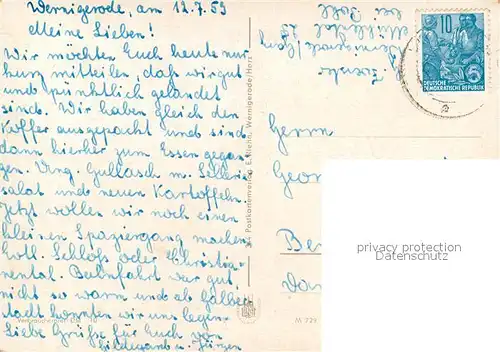 Wernigerode, am 12.7.59
Meine Lieben!
Wir möchten Euch heute nur
kurz mitteilen, daß wir gut
und pünktlich gelandet
sind. Wir haben gleich den
Koffer ausgepackt und sind
dann hierher zum Essen gegan-
gen. Ung. Gullasch m. Sellerie-
salat und neuen Kartoffeln.
Jetzt wollen wir noch einen
kleinen Spaziergang machen
evtl. Schloß oder Christia-
nental. Bahnfahrt war gut,
nicht so warm und ab Halber-
stadt konnten wir uns legen.
Liebe Grüße für Euch von
Hildegard u. Jürgen
Wernigerode/Harz
bei Pohl
10
DEUTSCHE
DEMOKRATISCHE REPUBLIK
Herrn
Geor
Be
privacy protection
Datenschutz
Wernigerode/Harz
M 729